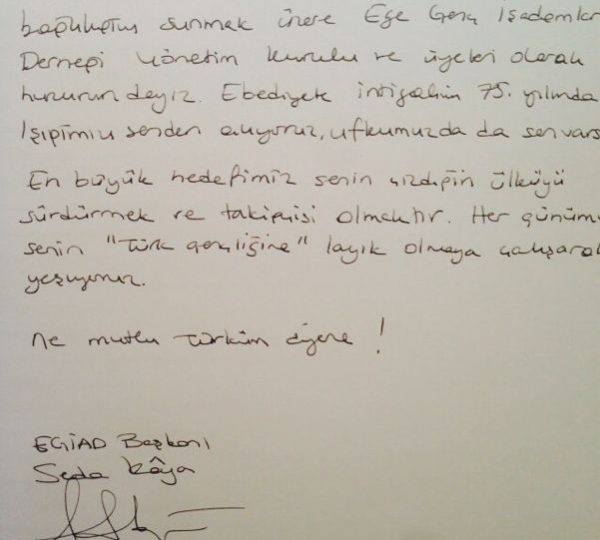 bağlılığımı sunmak üzere Ege Genç İşadamları
Derneği Yönetim Kurulu ve üyeleri olarak
huzurundayız. Ebediyete intigalinin 75. yılında
Işığımızı senden alıyoruz, ufkumuzda da sen vars
En büyük hedefimiz senin çizdiğin ülküyü
sürdürmek ve takipçisi olmaktır. Her günüm
senin "Türk gençliğine" layık olmaya çalışara
yaşıyoruz.
Ne mutlu Türküm diyene!
EGİAD Başkanı
Seda Kâya